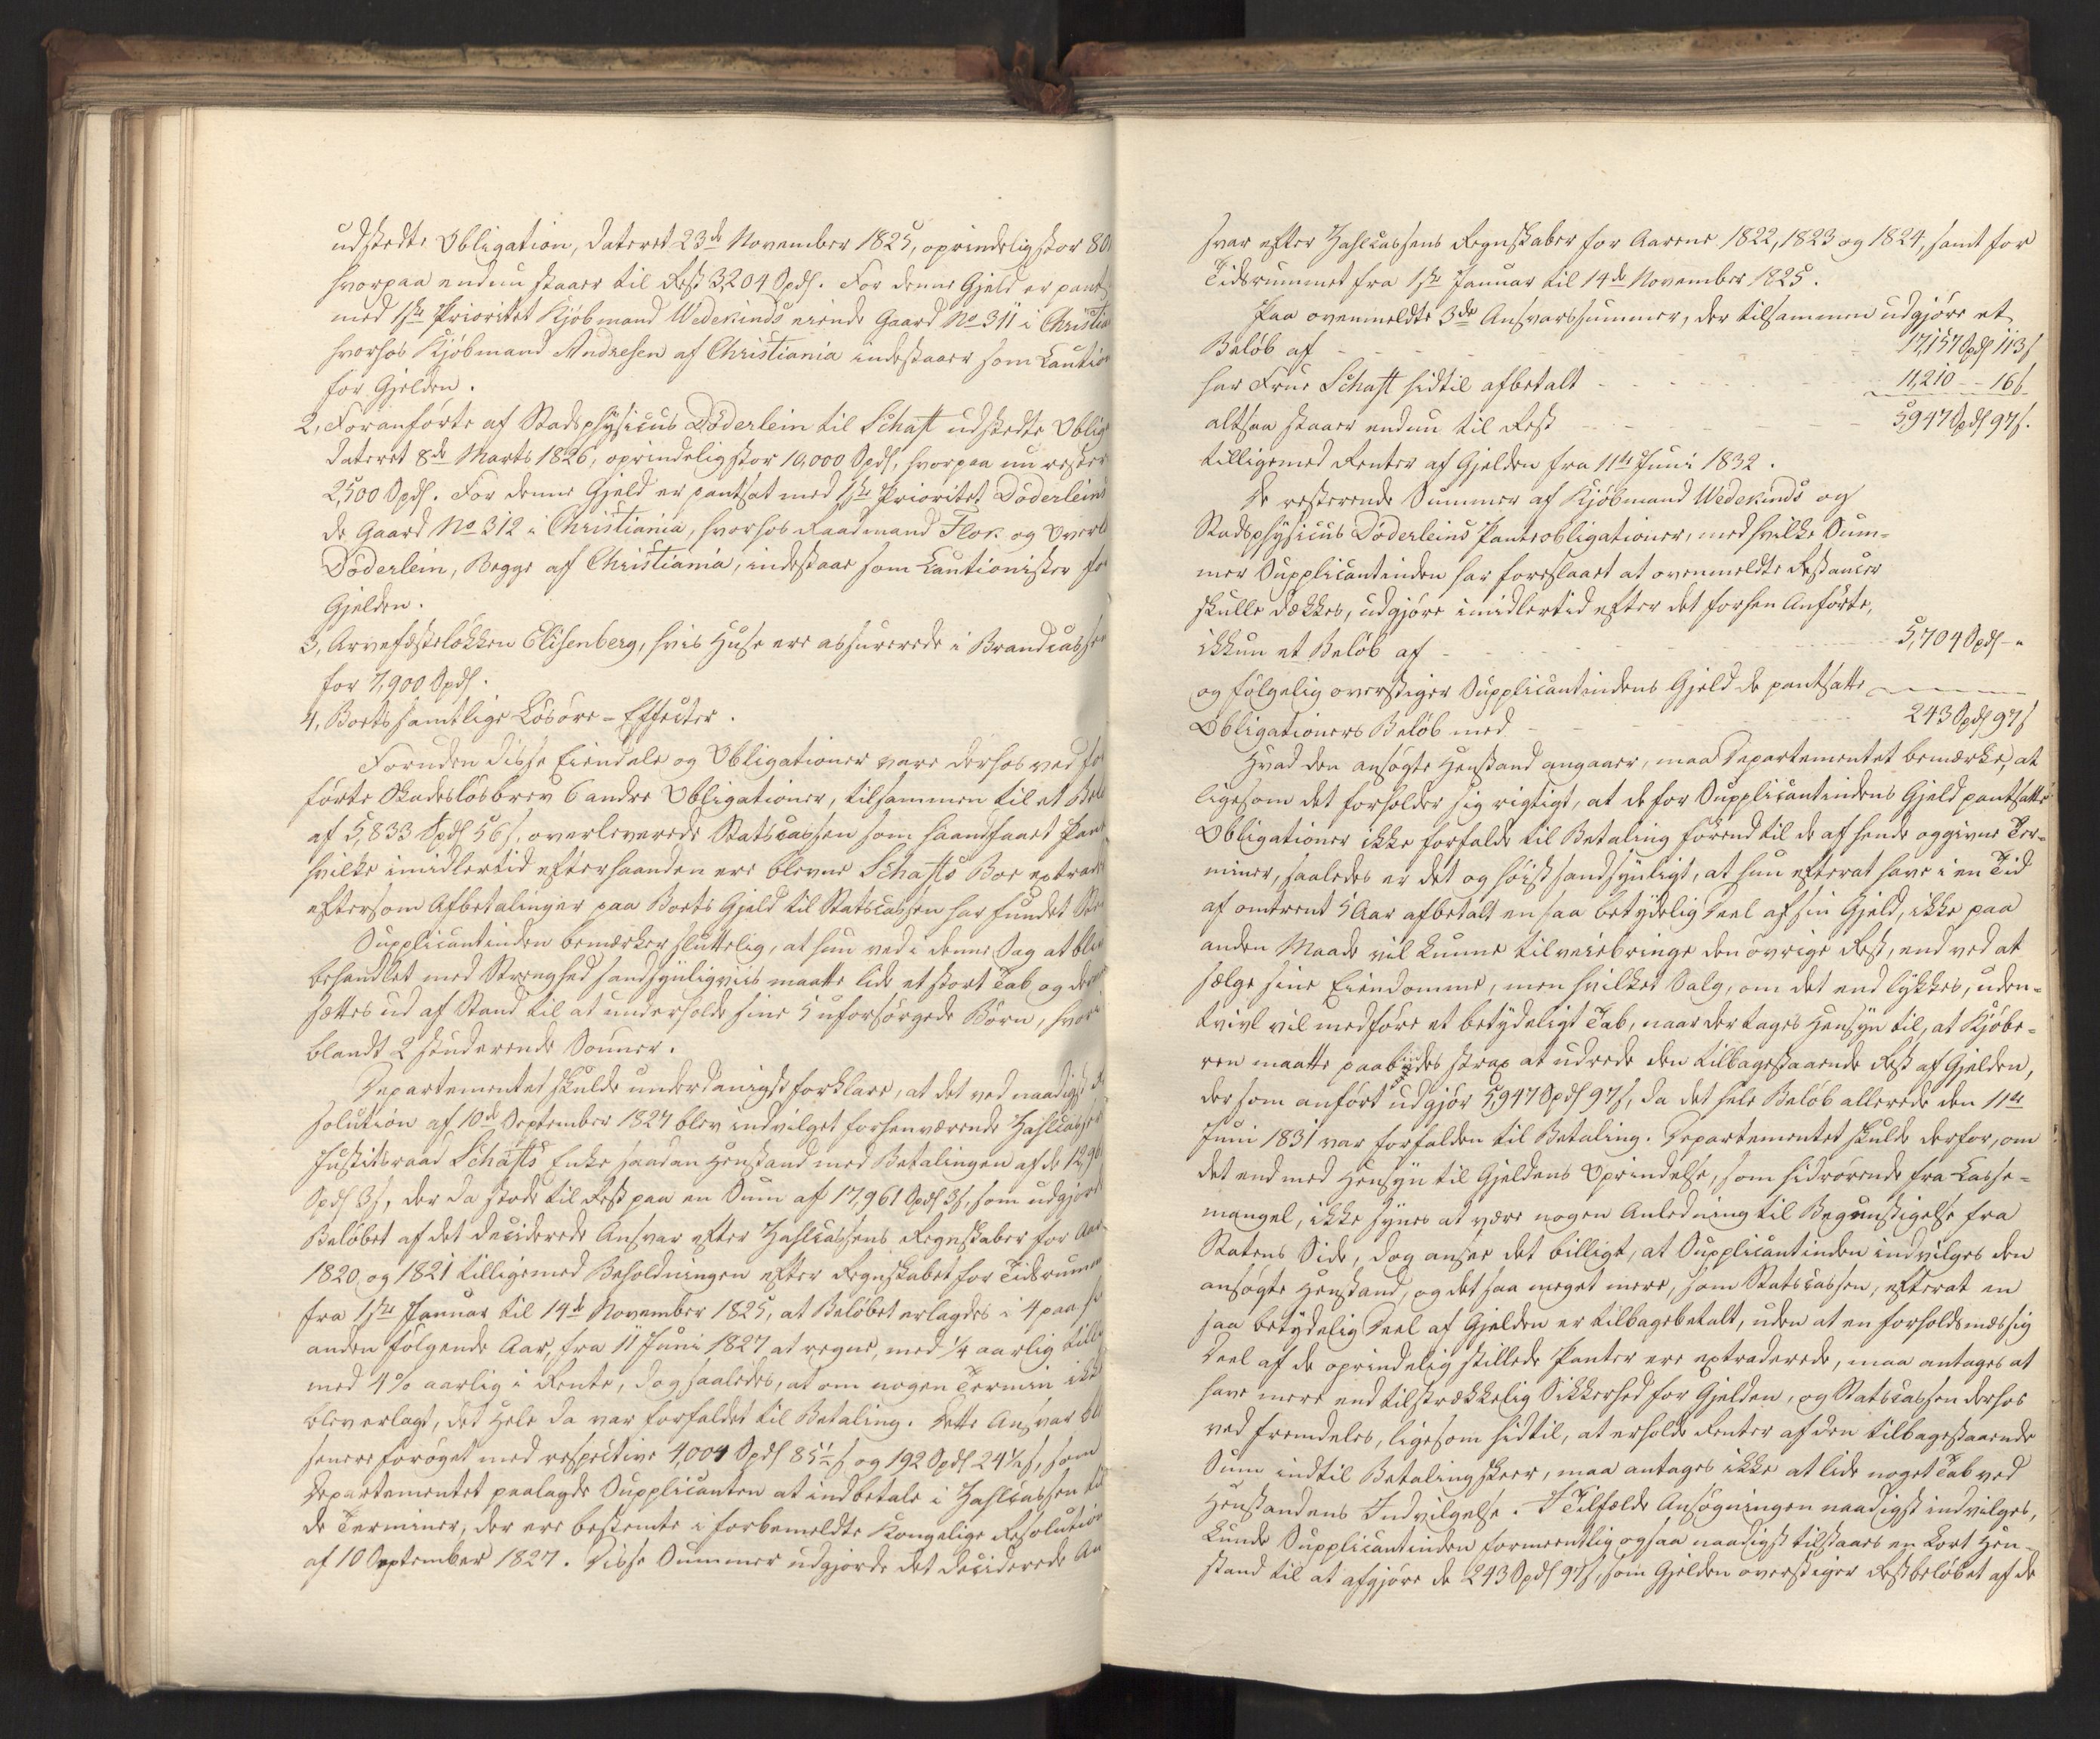 udstedte Obligation, dateret 23de November 1825, oprindelig stor 80
hvorpaa endnu staaer til Rest 3,204 Spd. For denne Gjeld er pant-
med 1ste Prioritet Kjøbmand Wedekinds eiende Gaard No 311 i Christia
hvorhos Kjøbmand Andresen af Christiania indestaaer som Cautio
for Gjelden.
2, Foranførte af Stadsphysicus Döderlein til Schaft udstedte Oblig
dateret 8de Marts 1826, oprindelig stor 10,000 Spd, hvorpaa nu rester
2,500 Spd. For denne Gjeld er pantsat med 1ste Prioritet Döderleins
de Gaard No 312 i Christiania, hvorhos Raadmand Flor og Overl
Döderlein, Begge af Christiania, indestaae som Cautionister for
Gjelden.
3, Arvefæsteløkken Elisenberg, hvis Huse ere assurerede i Brandcasse
for 7,900 Spd.
4, Boets samtlige Løsøre-Effecter.
Foruden disse Eiendele og Obligationer vare derhos ved for
førte Skadesløsbrev 6 andre Obligationer, tilsammen til et Belø
af 5,833 Spd 56 s, overleverede Statscassen som haandfaaet Pant
hvilke imidlertid efterhaanden ere blevne Schafts Boe extrade
eftersom Afbetalinger paa Boets Gjeld til Statscassen har fundet Ste
Supplicantinden bemærker sluttelig, at hun ved i denne Sag at bliv
behandlet med Strenghed sandsynligviis maatte lide et stort Tab og der
sættes ud af Stand til at underholde sine 5 uforsørgede Børn, hvori
blandt 2 studerende Sønner.
Departementet skulde underdanigst forklare, at det ved naadigst R
solution af 10de September 1827 blev indvilget forhenværende Zahlcasser
Justitsraad Schafts Enke saadan Henstand med Betalingen af de 12,96
Spd 3 s, der da stode til Rest paa en Sum af 17,961 Spd 3 s, som udgjorde
Beløbet af det deciderede Ansvar efter Zahlcassens Regnskaber for Aar
1820 og 1821 tilligemed Beholdningen efter Regnskabet for Tidsrumm
fra 1ste Januar til 14de November 1825, at Beløbet erlagdes i 4 paa hi
anden følgende Aar, fra 11 Juni 1827 at regne, med 1/4 aarlig till
med 4% aarlig i Rente, dog saaledes, at om nogen Termin ikk
blev erlagt, det Hele da var forfaldet til Betaling. Dette Ansvar bl
senere forøget med respective 4,004 Spd 85½ s og 192 Spd 24½ s, som
Departementet paalagde Supplicanten at indbetale i Zahlcassen til
de Terminer, der ere bestemte i forbemeldte Kongelige Resolution
af 10 September 1827. Disse Summer udgjorde det deciderede An
svar efter Zahlcassens Regnskaber for Aarene 1822, 1823 og 1824, samt for
Tidsrummet fra 1ste Januar til 14de November 1825.
Paa ovenmeldte 3de Ansvarssummer, der tilsammen udgjøre et
Beløb af - - - 17,157 Spd 113 s
har Frue Schaft hidtil afbetalt - - - 11,210 - - 16 s
altsaa staaer endnu til Rest - - - 5,947 Spd 97 s.
tilligemed Renter af Gjelden fra 11te Juni 1832.
De resterende Summer af Kjøbmand Wedekinds og
Stadsphysicus Döderleins Panteobligationer, med hvilke Sum-
mer Supplicantinden har foreslaaet at ovenmeldte Restancer
skulle dækkes, udgjøre imidlertid efter det forhen Anførte,
ikkun et Beløb af - - - 5,704 Spd - "
og følgelig overstiger Supplicantindens Gjeld de pantsatte
Obligationers Beløb med - - - 243 Spd 97 s
Hvad den ansøgte Henstand angaaer, maa Departementet bemærke, at
ligesom det forholder sig rigtigt, at de for Supplicantindens Gjeld pantsatte
Obligationer ikke forfalde til Betaling førend til de af hende opgivne Ter-
miner, saaledes er det og høist sandsynligt, at hun efterat have i en Tid
af omtrent 5 Aar afbetalt en saa betydelig Deel af sin Gjeld, ikke paa
anden Maade vil kunne tilveiebringe den øvrige Rest, end ved at
sælge sine Eiendomme, men hvilket Salg, om det end lykkes, uden-
tvivl vil medføre et betydeligt Tab, naar der tages Hensyn til, at Kjøbe-
ren maatte paabydes strax at udrede den tilbagestaaende Rest af Gjelden,
der som anført udgjør 5,947 Spd 97 s, da det hele Beløb allerede den 11te
Juni 1831 var forfalden til Betaling. Departementet skulde derfor, om
det end med Hensyn til Gjeldens Oprindelse, som hidrørende fra Casse-
mangel, ikke synes at være nogen Anledning til Begunstigelse fra
Statens Side, dog ansee det billigt, at Supplicantinden indvilges den
ansøgte Henstand, og det saa meget mere, som Statscassen, efterat en
saa betydelig Deel af Gjelden er tilbagebetalt, uden at en forholdsmæssig
Deel af de oprindelig stillede Panter ere extraderede, maa antages at
have mere end tilstrækkelig Sikkerhed for Gjelden, og Statscassen derhos
ved fremdeles, ligesom hidtil, at erholde Renter af den tilbagestaaende
Sum indtil Betaling skeer, maa antages ikke at lide noget Tab ved
Henstandens Indvilgelse. I Tilfælde Ansøgningen naadigst indvilges,
kunde Supplicantinden formeentlig ogsaa naadigst tilstaaes en kort Hen-
stand til at afgjøre de 243 Spd 97 s, som Gjelden overstiger Restbeløbet af de